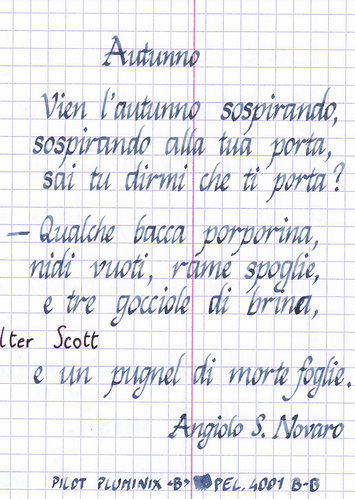 Autunno
Vien l'autunno sospirando,
sospirando alla tua porta,
sai tu dirmi che ti porta?
— Qualche bacca porporina,
nidi vuoti, rame spoglie,
e tre gocciole di brina,
lter Scott
e un pugnel di morte foglie.
Angiolo S. Novaro
PILOT PLUMINIX <B> PEL. 4001 B-B